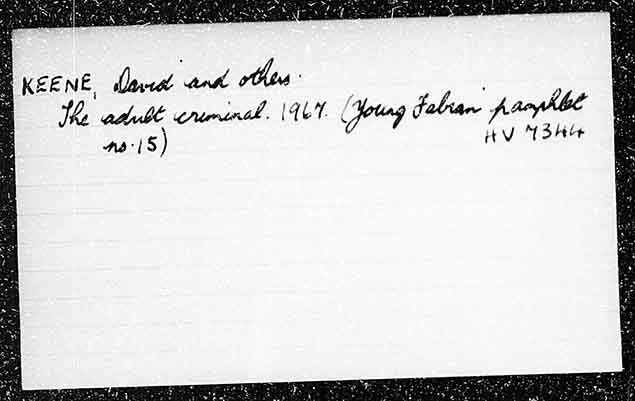 KEENE, David and others.
The adult criminal. 1967. (Young Fabian pamphlet
no. 15)
HV 7344